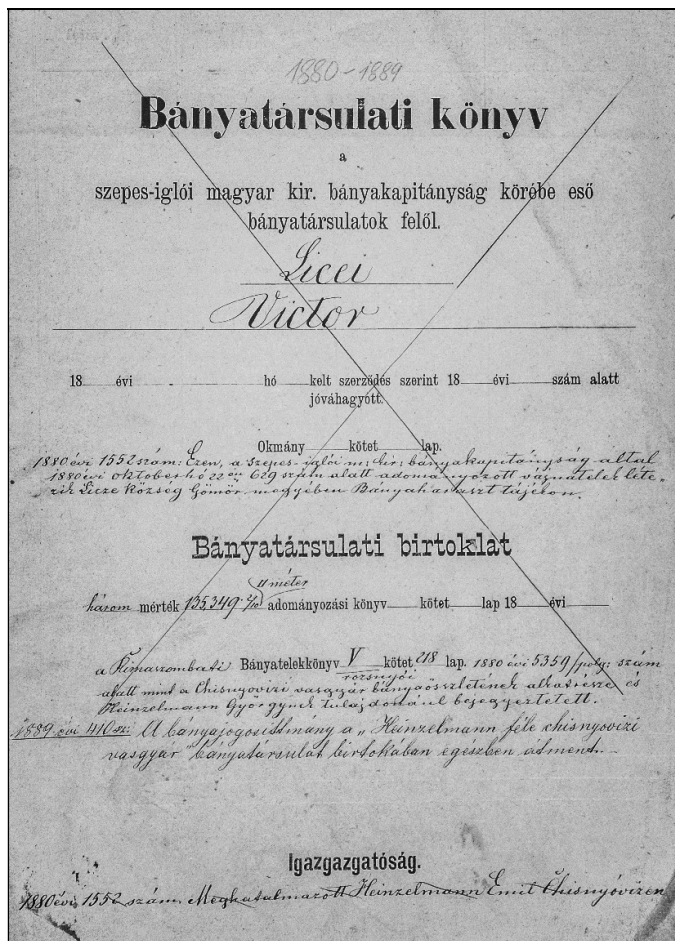 1880-1889
Bányatársulati könyv
a
szepes-iglói magyar kir. bányakapitányság körébe eső
bányatársulatok felől.
Licei
Victor
18 évi hó kelt szerződés szerint 18 évi szám alatt
jóváhagyott.
Okmány kötet lap.
1880 évi 1552 szám: Ezen, a Szepes-iglói m: kir: bányakapitányság által
1880 évi oktoberhó 22 én 629 szám alatt adományozott vájnatelek léte-
zik Licze község Gömör megyében Bányaharaszt tájékon.
Bányatársulati birtoklat
□ méter
három mérték 135.349 2/10 adományozási könyv kötet lap 18 évi
a Rimaszombati Bányatelekkönyv V kötet 218 lap. 1880 évi 5359/polg: szám
rozsnyói
alatt mint a Chisnyovizi vasgyár bányaösszletének alkatrésze és
Heinzelmann Györgynek tulajdonául bejegyeztetett.
1889 évi 410 sz: A bányajogosítmány a „Heinzelmann féle chisnyovizi
vasgyár" bányatársulat birtokában egészben átment.
Igazgazgatóság.
1880 évi 1552 szám. Meghatalmazott Heinzelmann Emil Chisnyóvizen